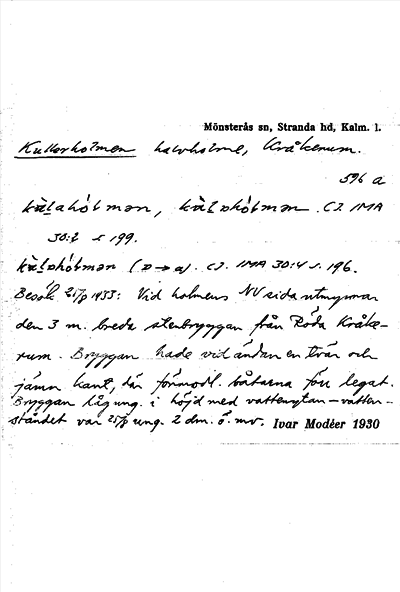 Mönsterås sn, Stranda hd, Kalm. l.
Kullerholmen halvholme, Kråkerum.
596 a
kä̀l̥ahól mən, kä̀l̥ɒhólmən. CJ. IMA
30:2 s 199.
kä̀l̥ɒhólmən (ɒ→a). CJ. IMA 30:4 s. 196.
Besök 1933: Vid holmens NV sida utmynnar
den 3 m. breda stenbryggan från Röda Kråke-
rum. Bryggan hade vid ändan en tvär och
jämn kant, där förmodl. båtarna förr legat.
Bryggan låg ung. i höjd med vattenytan – vatten-
ståndet var ung. 2 dm. ö. mv. Ivar Modéer 1930